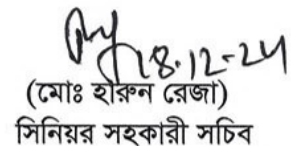 18.12-24
(মোঃ হারুন রেজা)
সিনিয়র সহকারী সচিব